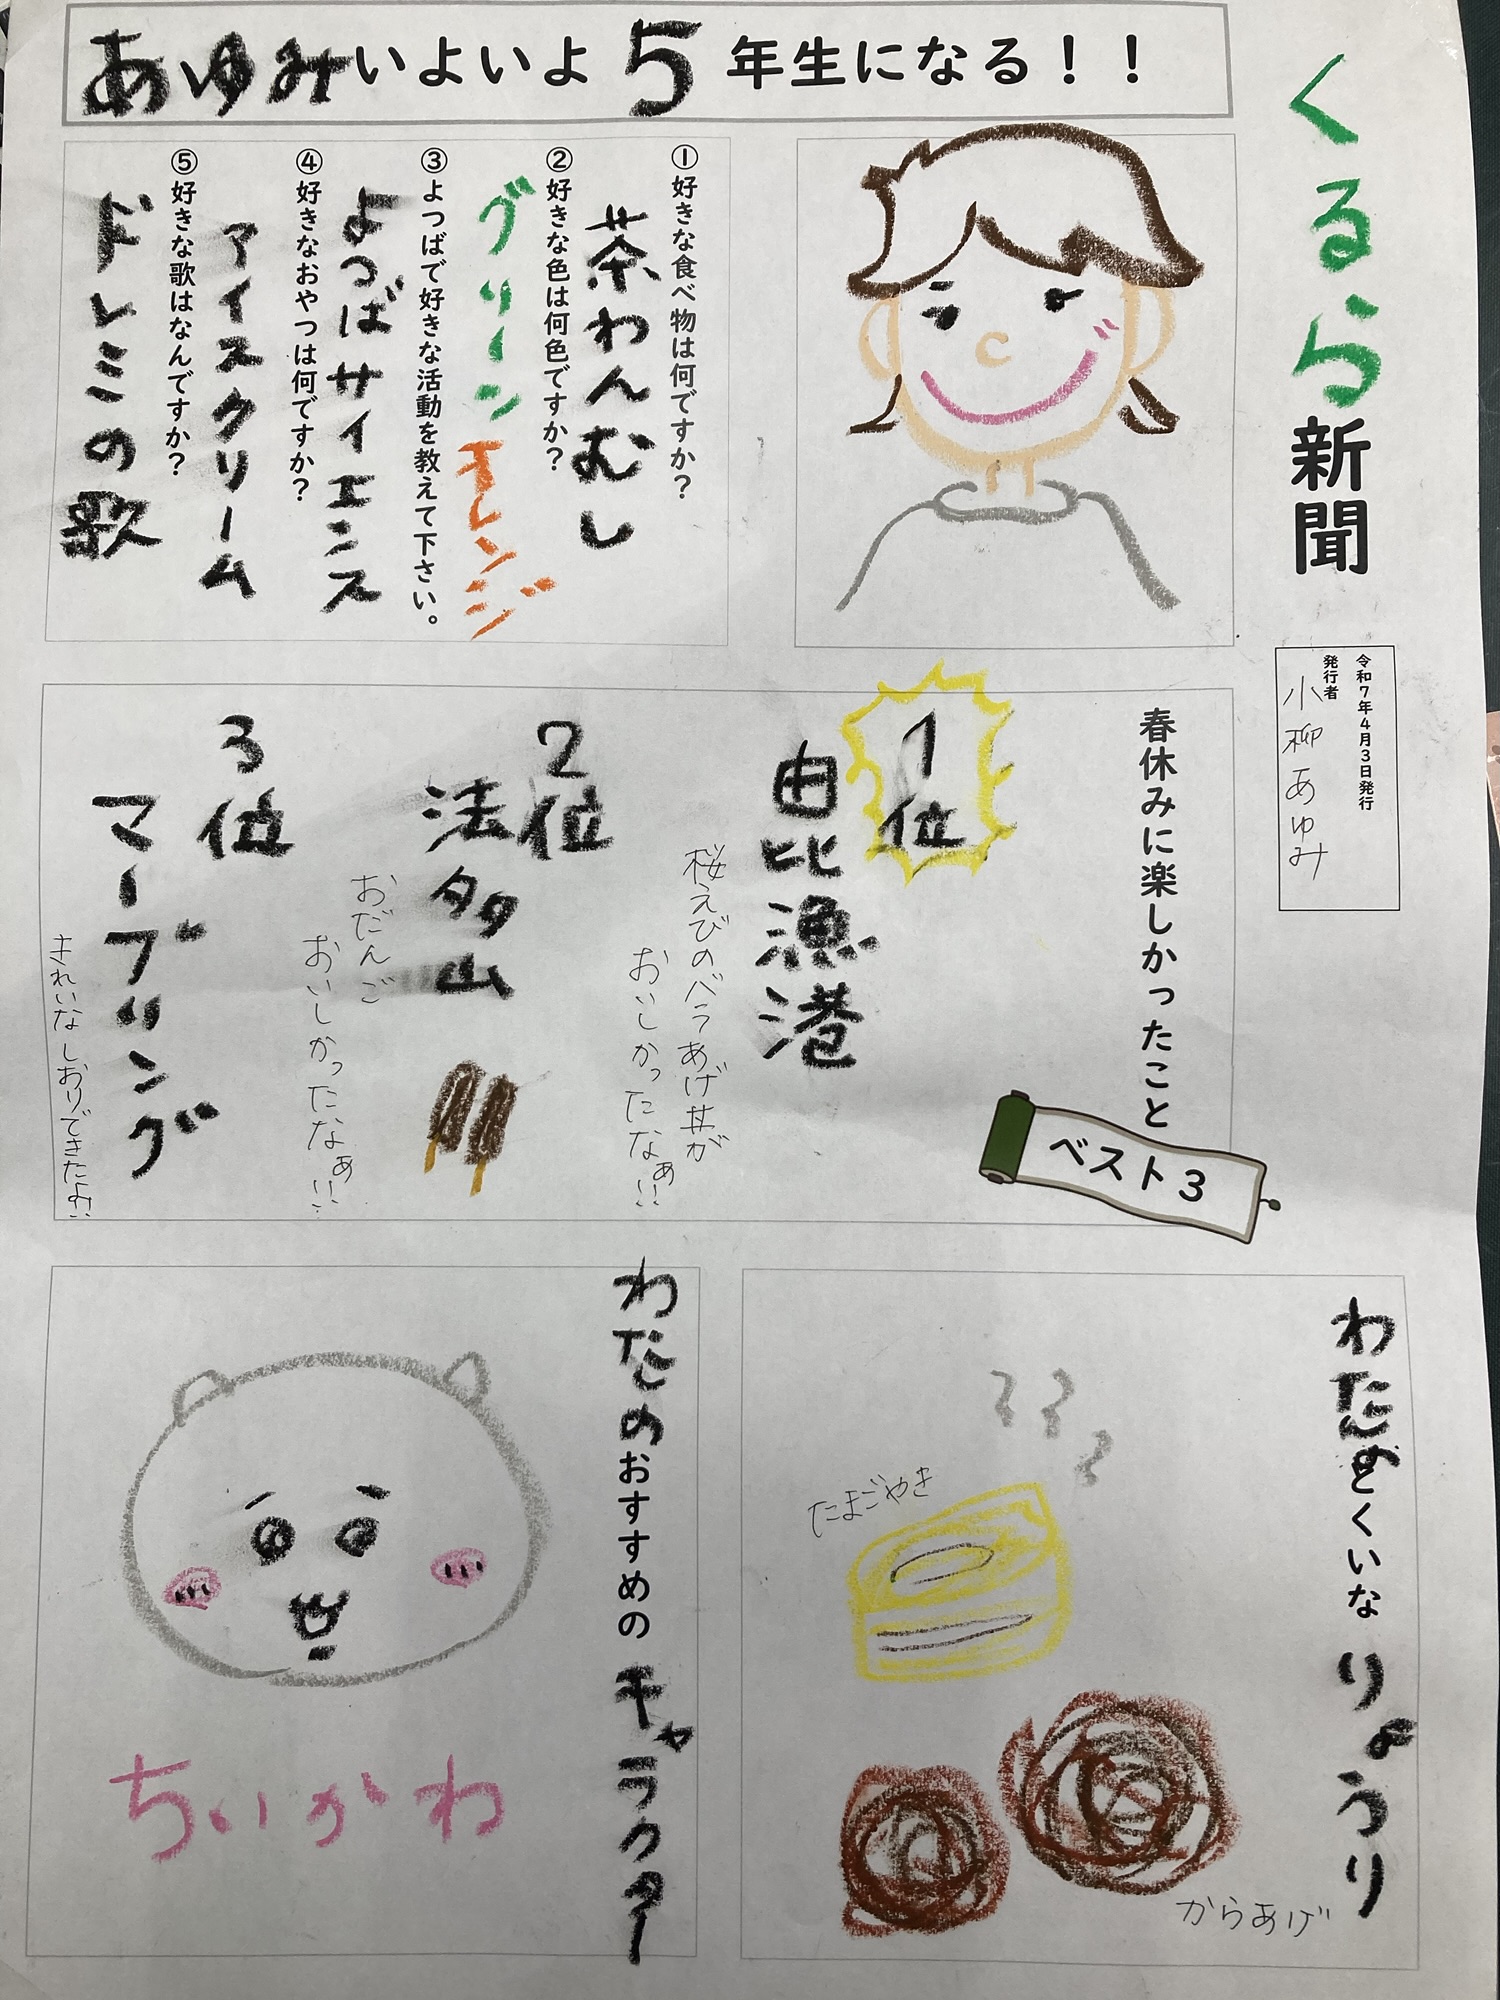 くるら新聞
令和7年4月3日発行
発行者
小柳あゆみ
あゆみいよいよ5年生になる！！
①好きな食べ物は何ですか？
茶わんむし
②好きな色は何色ですか？
グリーン オレンジ
③よつばで好きな活動を教えて下さい。
よつばサイエンス
④好きなおやつは何ですか？
アイスクリーム
⑤好きな歌はなんですか？
ドレミの歌
春休みに楽しかったこと
ベスト3
1位
由比漁港
桜えびのバラあげ丼が
おいしかったなぁ!!
2位
法多山
おだんご
おいしかったなぁ!!
3位
マーブリング
きれいなしおりできたよ!!
わたしのとくいな りょうり
たまごやき
からあげ
わたしのおすすめの キャラクター
ちいかわ